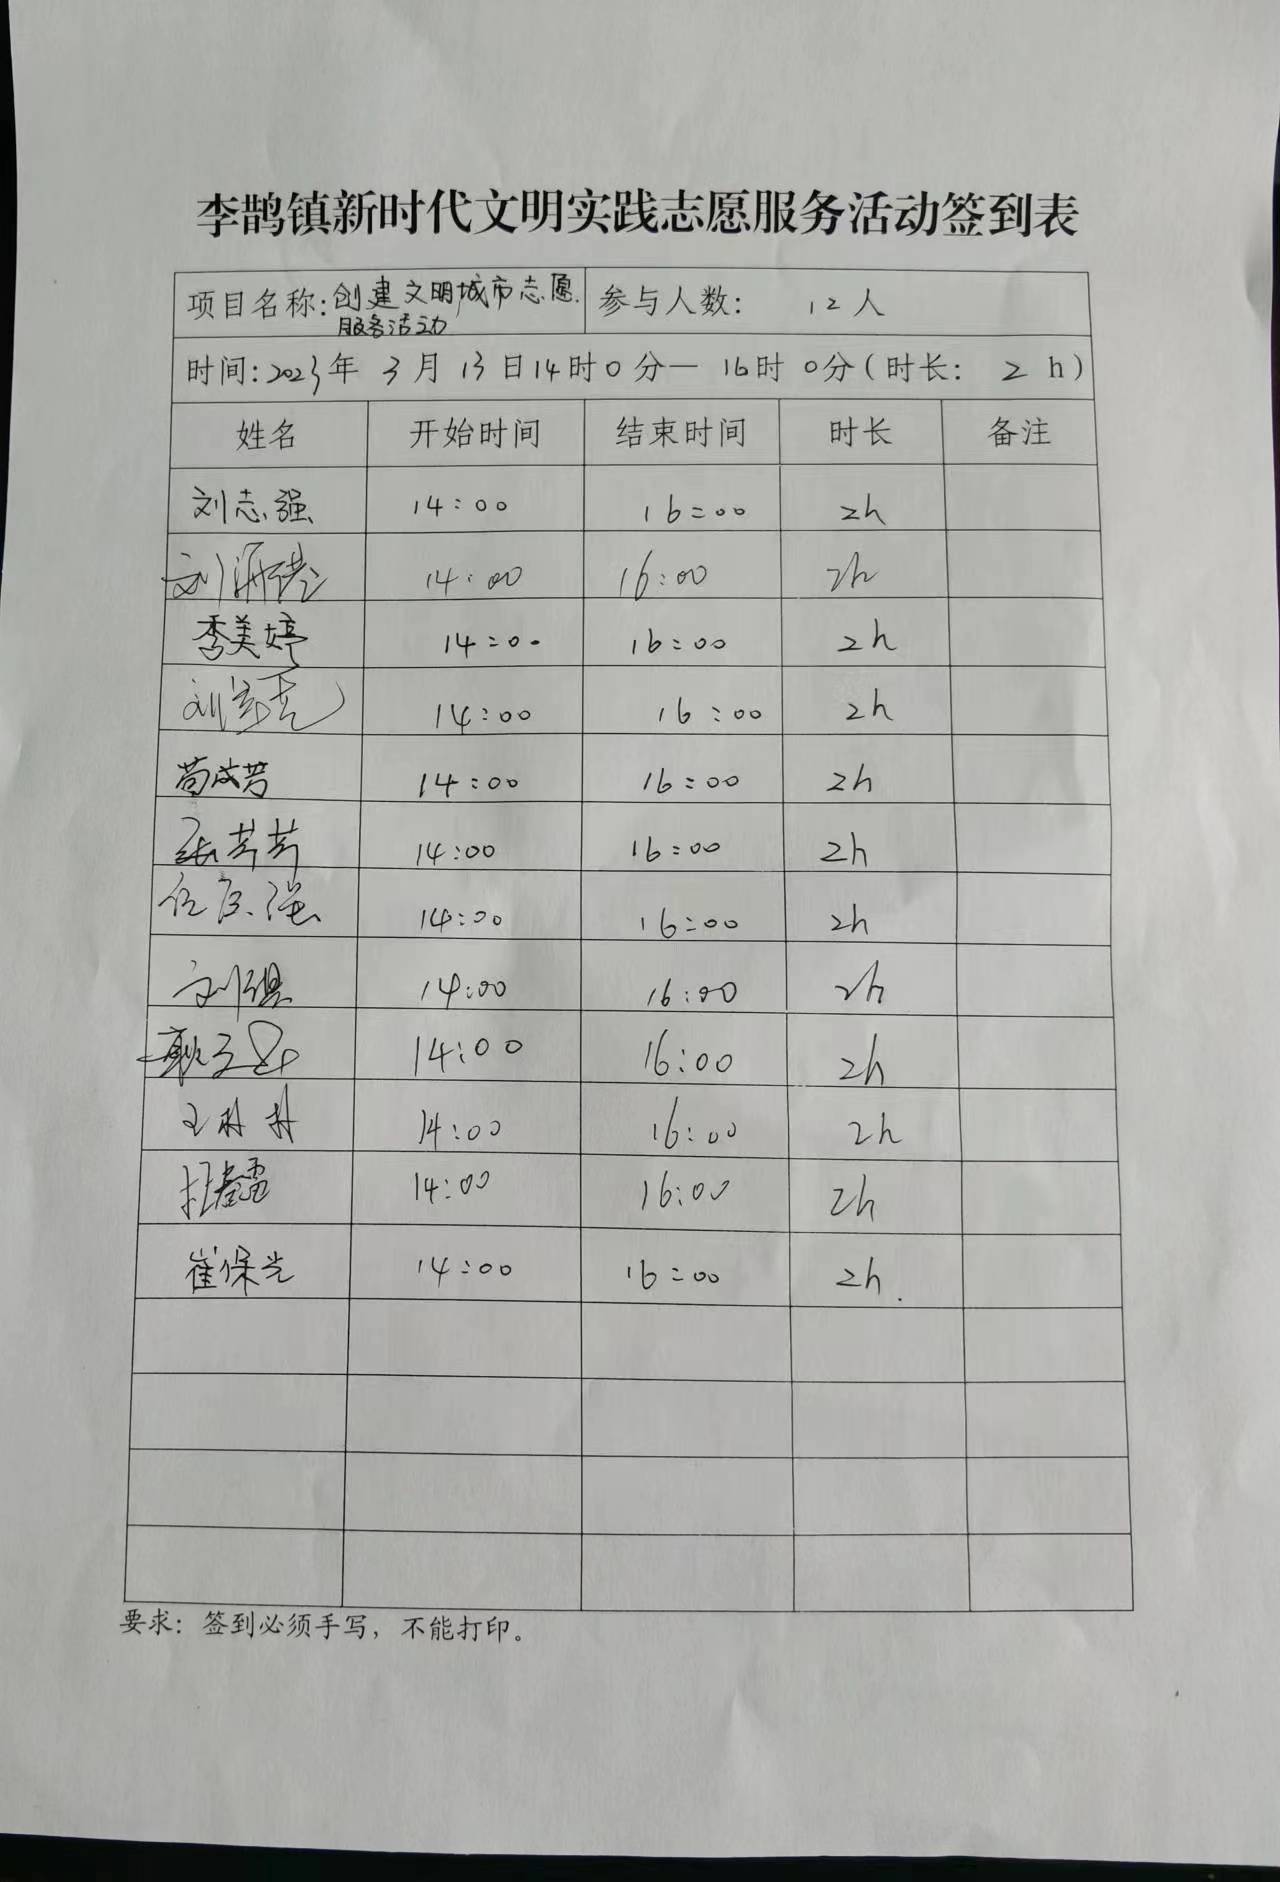 李鹊镇新时代文明实践志愿服务活动签到表
项目名称:创建文明城市志愿服务活动 参与人数: 12人
时间:2023年 3月 13日14时0分— 16时 0分(时长: 2 h)
姓名 开始时间 结束时间 时长 备注
刘志强 14:00 16:00 2h
刘 14:00 16:00 2h
李美婷 14:00 16:00 2h
刘 14:00 16:00 2h
苟成芳 14:00 16:00 2h
张芳芳 14:00 16:00 2h
任 强 14:00 16:00 2h
刘 14:00 16:00 2h
14:00 16:00 2h
王 14:00 16:00 2h
14:00 16:00 2h
崔保光 14:00 16:00 2h.
要求: 签到必须手写，不能打印。